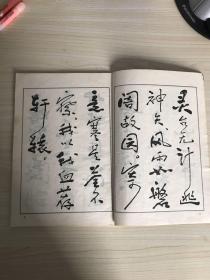 灵台无计逃
神矢风雨如磐
闇故园。寄
意寒星荃不
察，我以我血荐
轩辕。